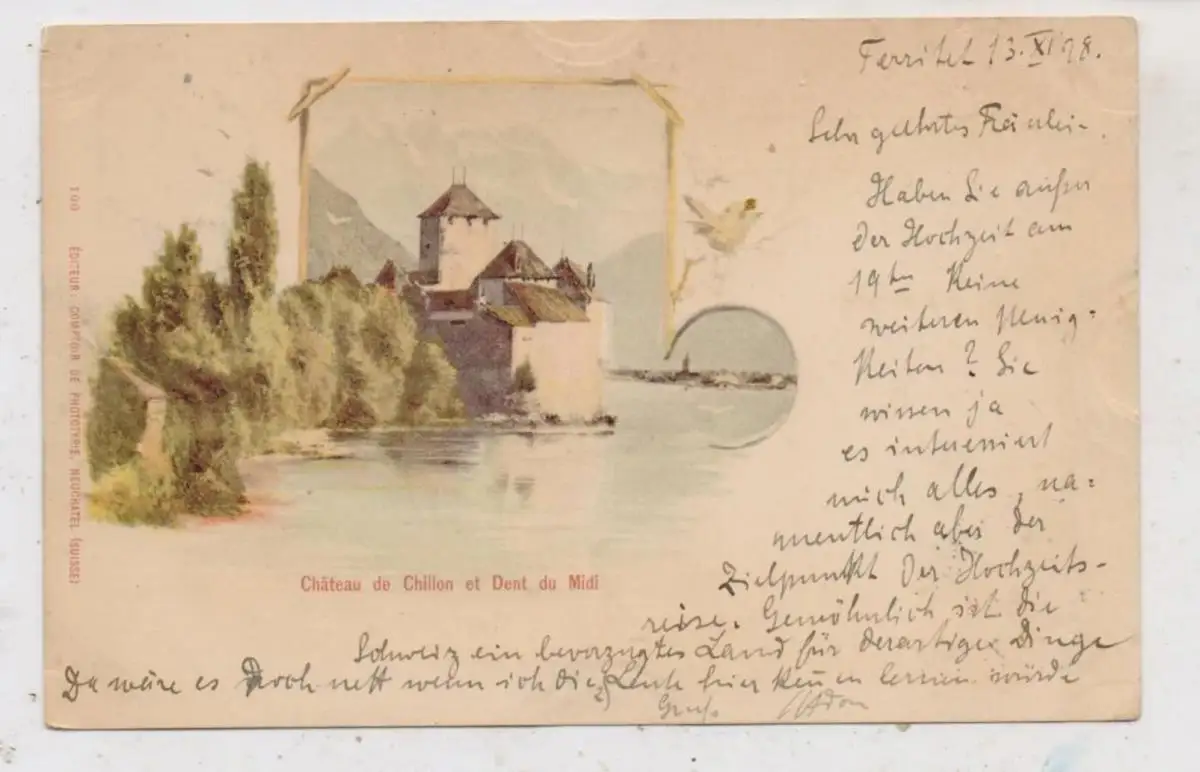 Territet 13. XI 98.
Sehr geehrtes Fräulein.
Haben Sie außer
der Hochzeit am
19ten keine
weiteren Neuig-
keiten? Sie
wissen ja
es interessiert
mich alles, na-
mentlich aber der
Zielpunkt der Hochzeits-
reise. Gewöhnlich ist die
Schweiz ein bevorzugtes Land für derartige Dinge
Da wäre es doch nett wenn ich die Leute hier kennen lernen würde
Gruß
Château de Chillon et Dent du Midi
100 ÉDITEUR: COMPTOIR DE PHOTOTYPIE, NEUCHATEL (SUISSE)